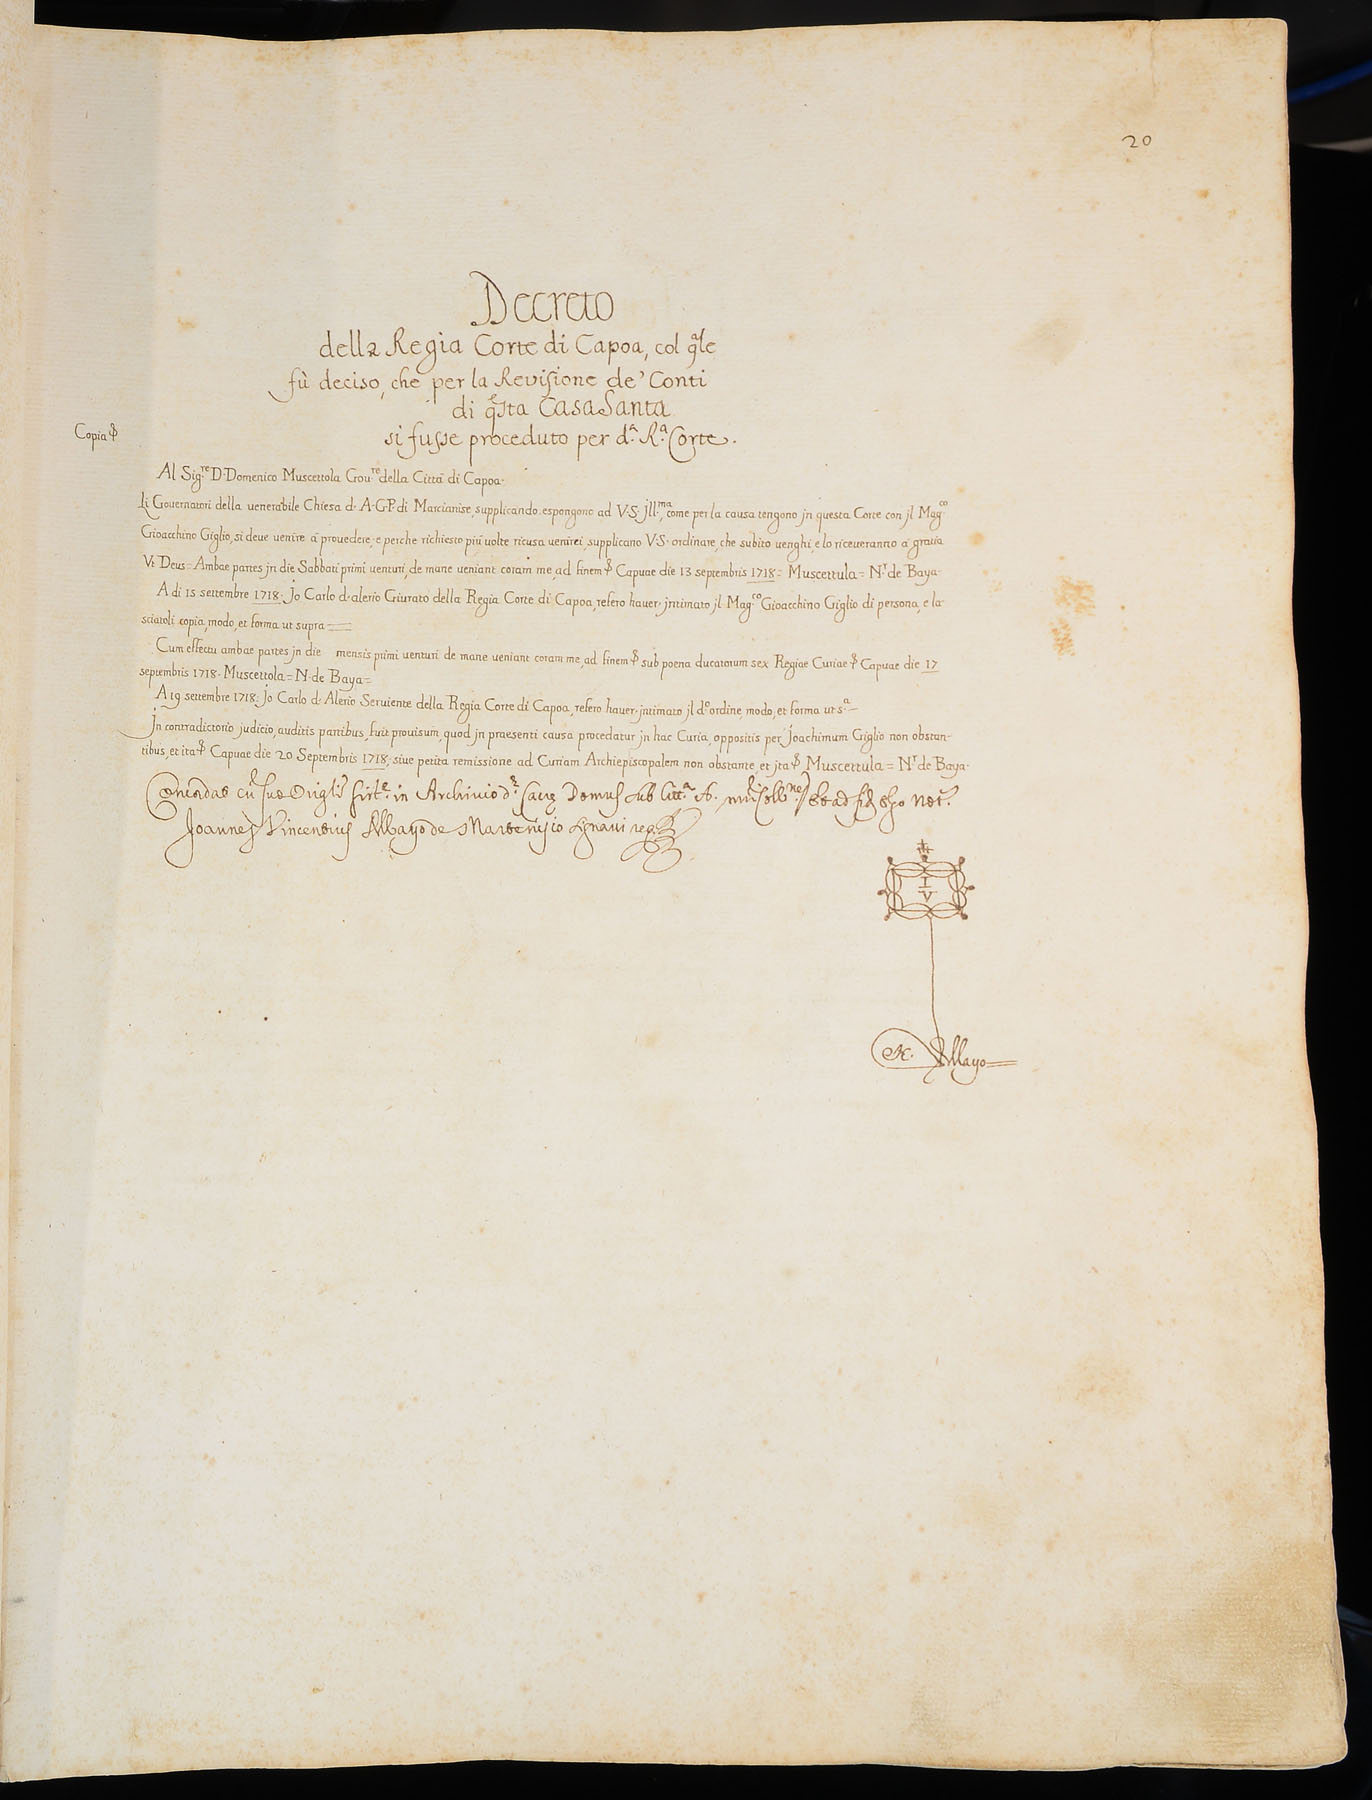 20
Decreto
della Regia Corte di Capoa, col q.le
fù deciso, che per la Revisione de' Conti
di q.sta Casa Santa
si fusse proceduto per d.a R.a Corte.
Copia
Al Sig.re D. Domenico Muscettola Gou.re della Città di Capoa.
Li Gouernatori della uenerabile Chiesa d. A.G.P. di Marcianise, supplicando espongono ad V.S. jll.ma, come per la causa tengono jn questa Corte con jl Mag.co
Gioacchino Giglio, si deue uenire à prouedere, e perche richiesto più uolte ricusa uenirci, supplicano V.S. ordinare, che subito uenghi, e lo riceueranno à gratia
Vt Deus = Ambae partes jn die Sabbati primi uenturi, de mane ueniant coram me, ad finem Capuae die 13 septembris 1718 = Muscettula = N.r de Baya
A di 15 settembre 1718. Jo Carlo d'alerio Giurato della Regia Corte di Capoa, refero hauer jntimato jl Mag.co Gioacchino Giglio di persona, e la-
sciatoli copia, modo, et forma ut supra
Cum effectu ambae partes jn die mensis primi uenturi de mane ueniant coram me, ad finem sub poena ducatorum sex Regiae Curiae Capuae die 17
septembris 1718. Muscettola = N. de Baya =
A 19 settembre 1718. Jo Carlo d'Alerio Seruiente della Regia Corte di Capoa, refero hauer jntimato jl d.o ordine, modo, et forma ut s.a
Jn contradictorio judicio, auditis partibus, fuit prouisum, quod jn praesenti causa procedatur jn hac Curia, oppositis per Joachimum Giglio non obstan-
tibus, et ita Capuae die 20 Septembris 1718, siue petita remissione ad Curiam Archiepiscopalem non obstante, et jta Muscettula = N.r de Baya.
cũ suo in Archiuio Domus sub Litt.a
Joannes Vincentius Allayo de
I
V
Allayo